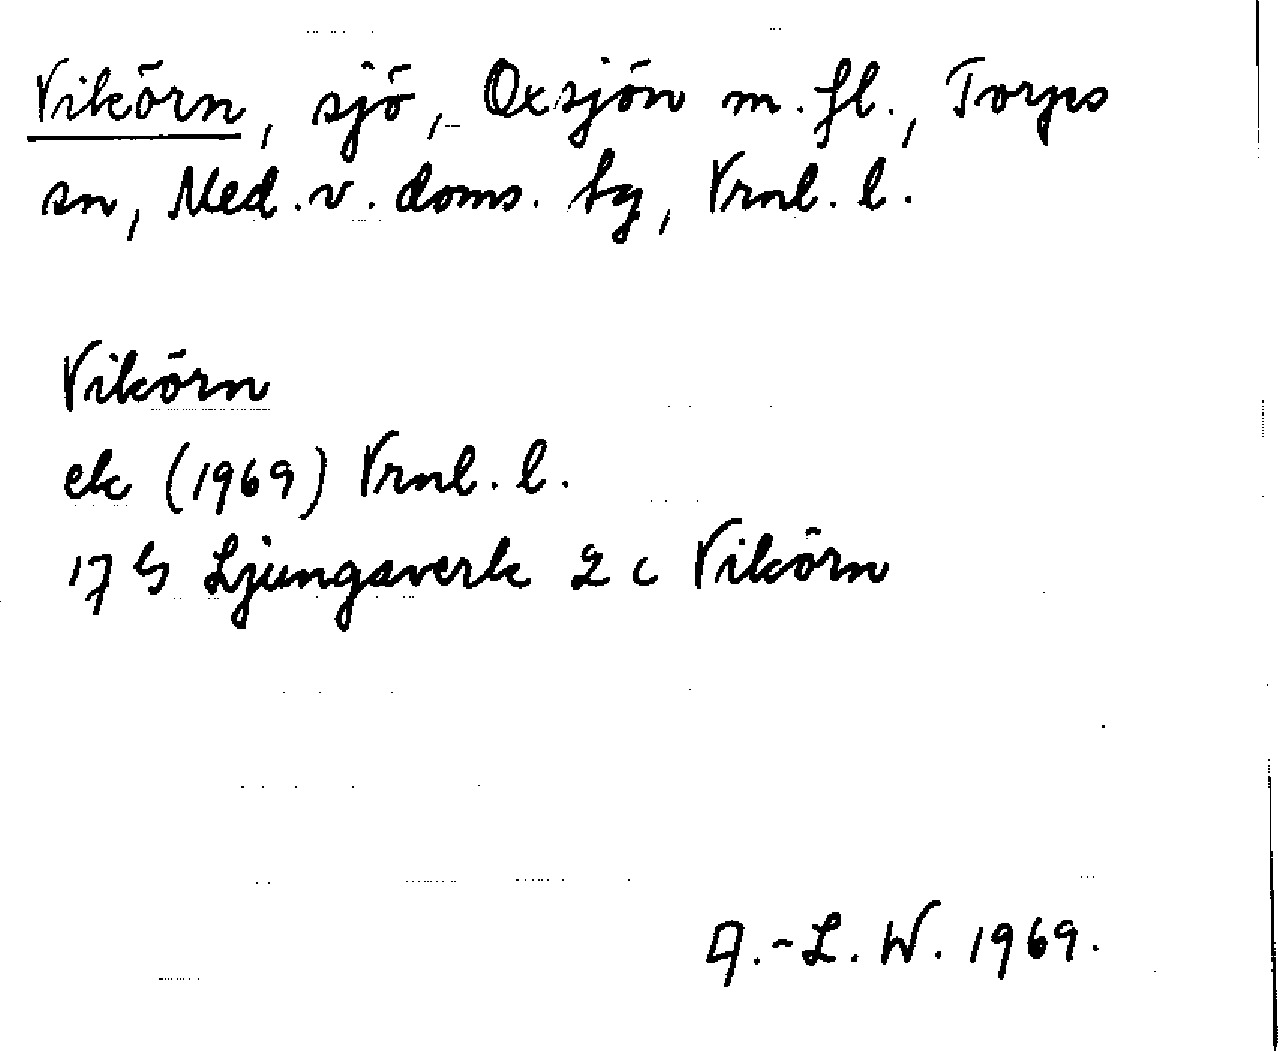 Vikörn, sjö, Oxsjön m. fl., Torps
sn, Med. v. doms. tg, Vrnl. l.
Vikörn
ek (1969) Vrnl. l.
17 G Ljungaverk 2 c Vikörn
A.-L. W. 1969.